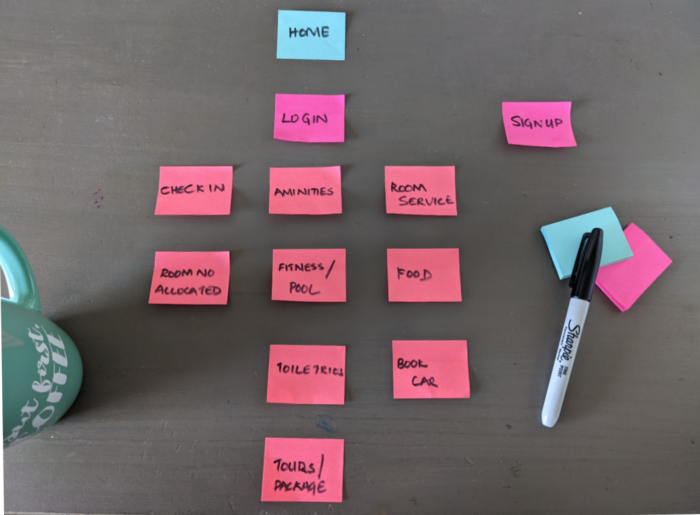 HOME
LOGIN
SIGNUP
CHECK IN
AMINITIES
ROOM
SERVICE
ROOM NO
ALLOCATED
FITNESS/
POOL
FOOD
TOILETRIES
BOOK
CAR
TOURS/
PACKAGE
Sharpie
but first,
COFFEE